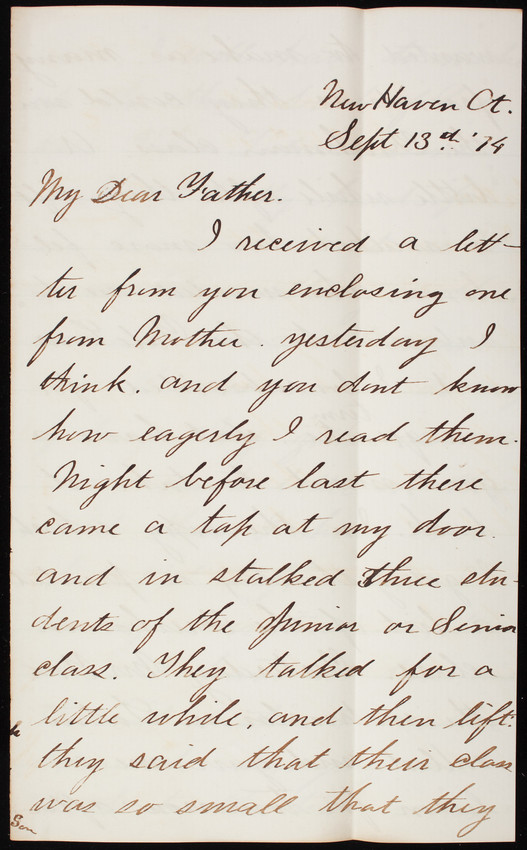 New Haven Ct.
Sept 13d. '74
My Dear Father.
I received a let-
ter from you enclosing one
from Mother. yesterday I
think. and you dont know
how eagerly I read them.
Night before last there
came a tap at my door.
and in stalked three stu-
dents of the Junior or Senior
class. They talked for a
little while, and then left.
they said that their class
was so small that they